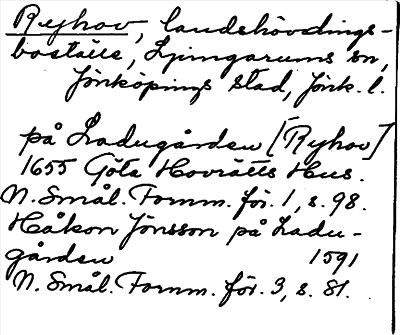 Ryhov, landshövdings-
boställe, Ljungarums sn,
Jönköpings stad, Jönk. l.
på Ladugården [Ryhov]
1655 Göta Hovrätts Hus.
N. Smål. Fornm. för. 1, s. 98.
Håkon Jönsson på Ladu-
gården 1591
N. Smål. Fornm. för. 3, s. 81.